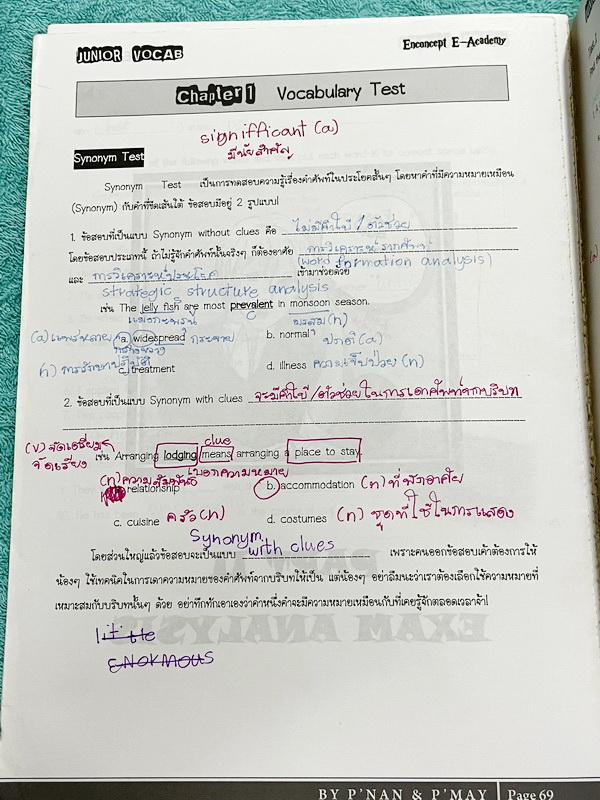 JUNIOR VOCAB
Enconcept E-Academy
Chapter 1 Vocabulary Test
signifficant (a)
มีนัยสำคัญ
Synonym Test
Synonym Test เป็นการทดสอบความรู้เรื่องคำศัพท์ในประโยคสั้นๆ โดยหาคำที่มีความหมายเหมือน
(Synonym) กับคำที่ขีดเส้นใต้ ข้อสอบมีอยู่ 2 รูปแบบ!
1. ข้อสอบที่เป็นแบบ Synonym without clues คือ ไม่มีคำใบ้ / ตัวช่วย
โดยข้อสอบประเภทนี้ ถ้าไม่รู้จักคำศัพท์นั้นจริงๆ ก็ต้องอาศัย การวิเคราะห์รากศัพท์
(word formation analysis)
และ การวิเคราะห์ประโยค เข้ามาช่วยด้วย
strategic structure analysis
เช่น The jelly fish are most prevalent in monsoon season.
แมงกะพรุน มรสุม (n)
(a) แพร่หลาย a. widespread กระจาย b. normal ปกติ (a)
กว้างขวาง
(n) การรักษา c. treatment d. illness ความเจ็บป่วย (n)
2. ข้อสอบที่เป็นแบบ Synonym with clues จะมีคำใบ้ / ตัวช่วยในการเดาศัพท์จากบริบท
clue
(v) จัดเตรียม เช่น Arranging lodging means arranging a place to stay.
จัดเรียง
(n) ความสัมพันธ์ บอกความหมาย
relationship b. accommodation (n) ที่พักอาศัย
c. cuisine ครัว (n) d. costumes (n) ชุดที่ใช้ในการแสดง
Synonym
โดยส่วนใหญ่แล้วข้อสอบจะเป็นแบบ with clues เพราะคนออกข้อสอบเค้าต้องการให้
น้องๆ ใช้เทคนิคในการเดาความหมายของคำศัพท์จากบริบทให้เป็น แต่น้องๆ อย่าลืมนะว่าเราต้องเลือกใช้ความหมายที่
เหมาะสมกับบริบทนั้นๆ ด้วย อย่าทึกทักเอาเองว่าคำหนึ่งคำจะมีความหมายเหมือนที่เคยรู้จักตลอดเวลาจ้า!
little
ENORMOUS
EXAM ANALYSIS
BY P'NAN & P'MAY | Page 69